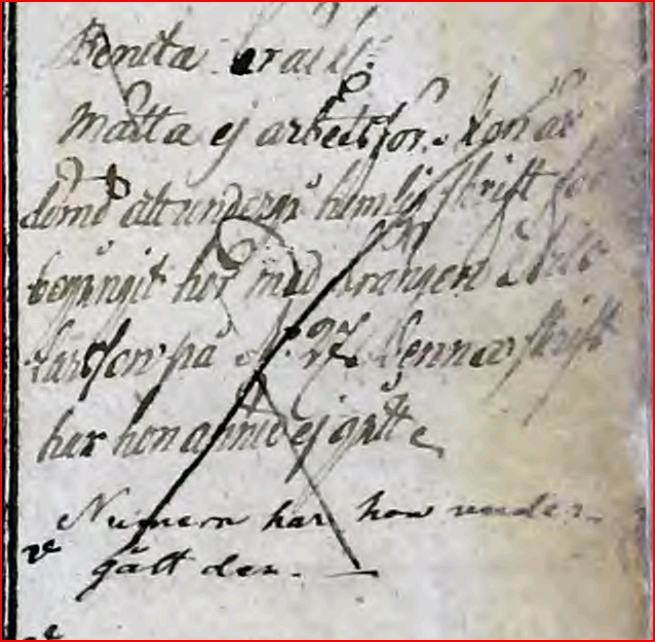 Benita
Måtta ej arbetsför. hon är
dömd att undergå hemlig skrift för
begångit hor med Drängen
på N: 27. Denna skrift
har hon ännu ej gått
Numera har hon under-
gått den. —